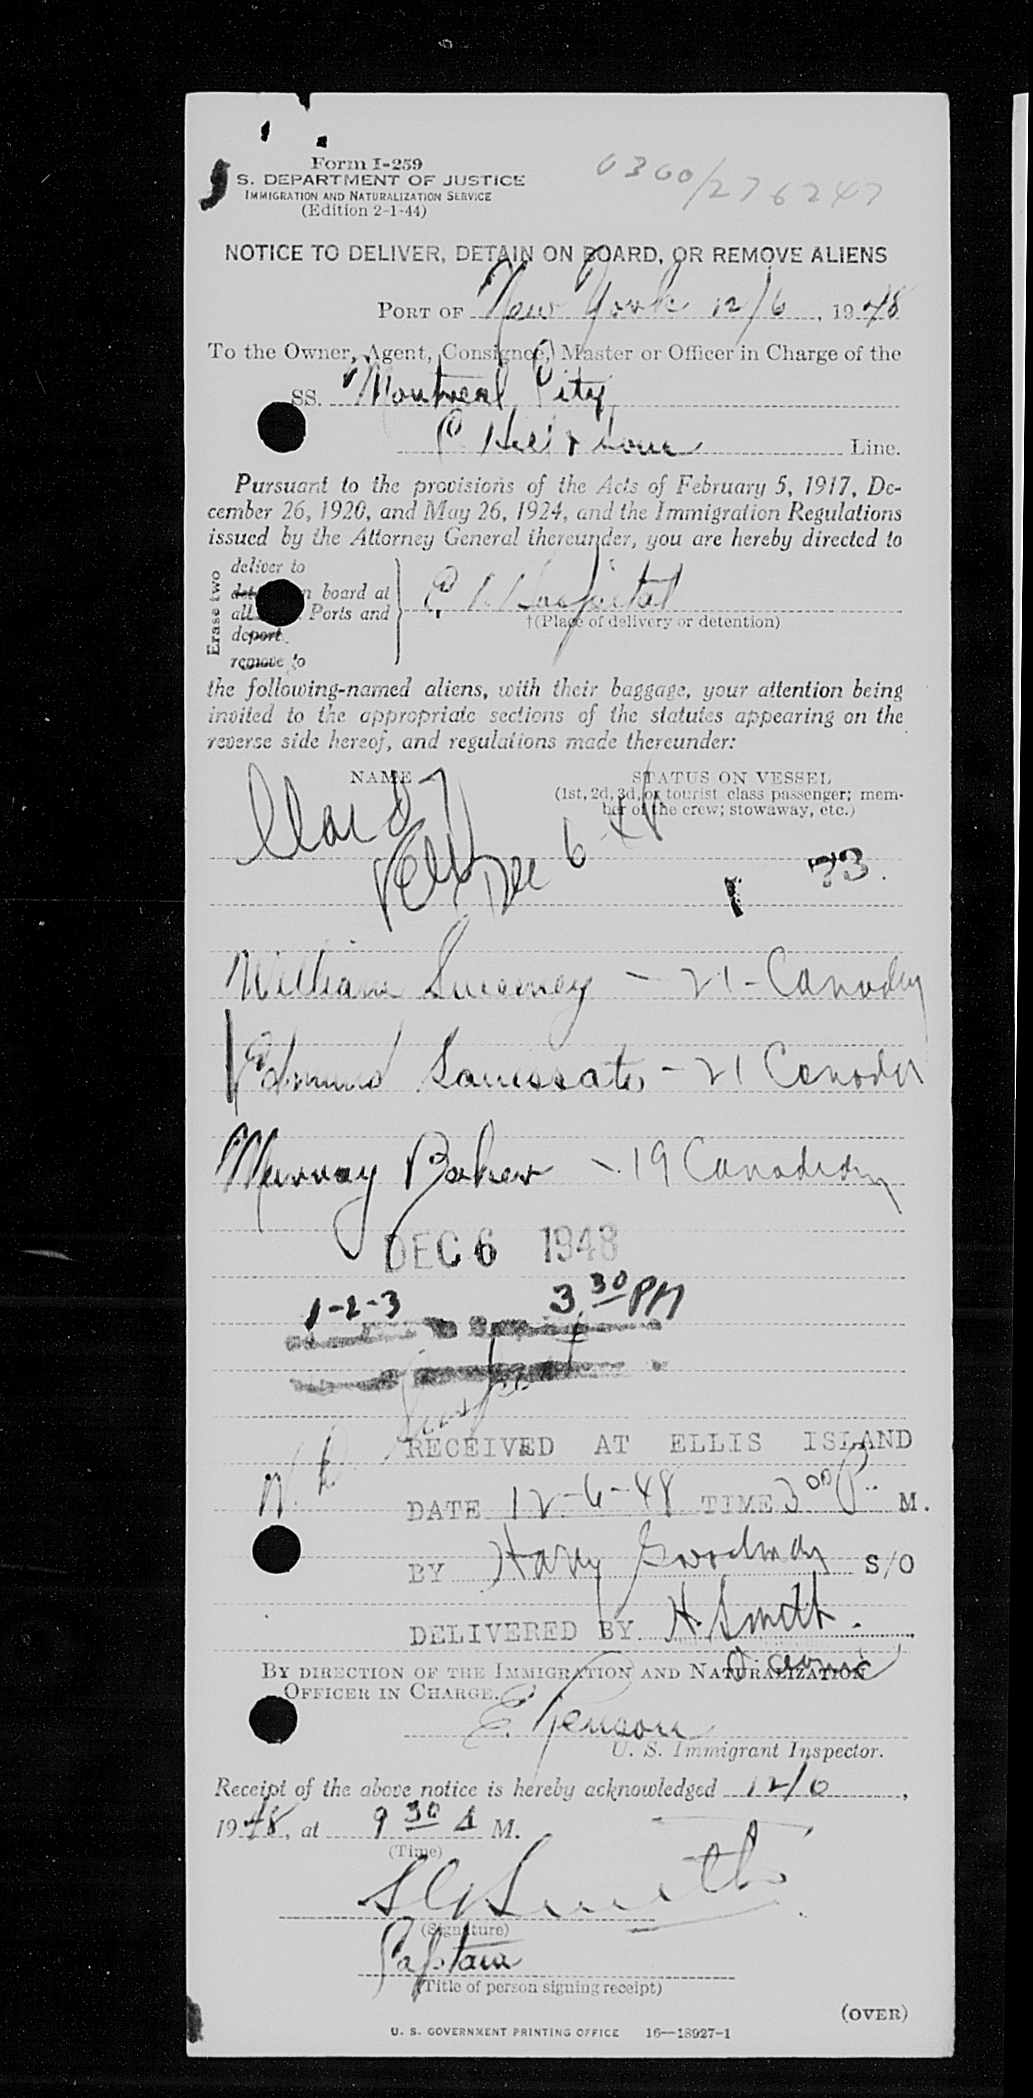 Form I-259
S. DEPARTMENT OF JUSTICE
IMMIGRATION AND NATURALIZATION SERVICE
(Edition 2-1-44)
0300/276247
NOTICE TO DELIVER, DETAIN ON BOARD, OR REMOVE ALIENS
PORT OF New York 12/6, 1948
To the Owner, Agent, Consignee, Master or Officer in Charge of the
SS. Montreal City
C Hill & Sons Line.
Pursuant to the provisions of the Acts of February 5, 1917, De-
cember 26, 1920, and May 26, 1924, and the Immigration Regulations
issued by the Attorney General thereunder, you are hereby directed to
Erase two
deliver to
board at
Ports and
deport
remove to
E I Hospital
†(Place of delivery or detention)
the following-named aliens, with their baggage, your attention being
invited to the appropriate sections of the statutes appearing on the
reverse side hereof, and regulations made thereunder:
NAME
STATUS ON VESSEL
(1st, 2d, 3d, or tourist class passenger; mem-
ber of the crew; stowaway, etc.)
Ward 7
Dec 6 48
33
William Sweeney - 21 - Canadian
Edmund - 21 Canadian
Murray Baker - 19 Canadian
DEC 6 1948
1-2-3 3 30 PM
RECEIVED AT ELLIS ISLAND
DATE 12-6-48 TIME 3 00 P. M.
BY Harry Goodman S/O
DELIVERED BY H. Smith
BY DIRECTION OF THE IMMIGRATION AND NATURALIZATION
OFFICER IN CHARGE.
E. Penson
U. S. Immigrant Inspector.
Receipt of the above notice is hereby acknowledged 12/6,
1948, at 9 30 A M.
(Time)
S G Smith
(Signature)
Captain
(Title of person signing receipt)
(OVER)
U. S. GOVERNMENT PRINTING OFFICE 16—18927-1